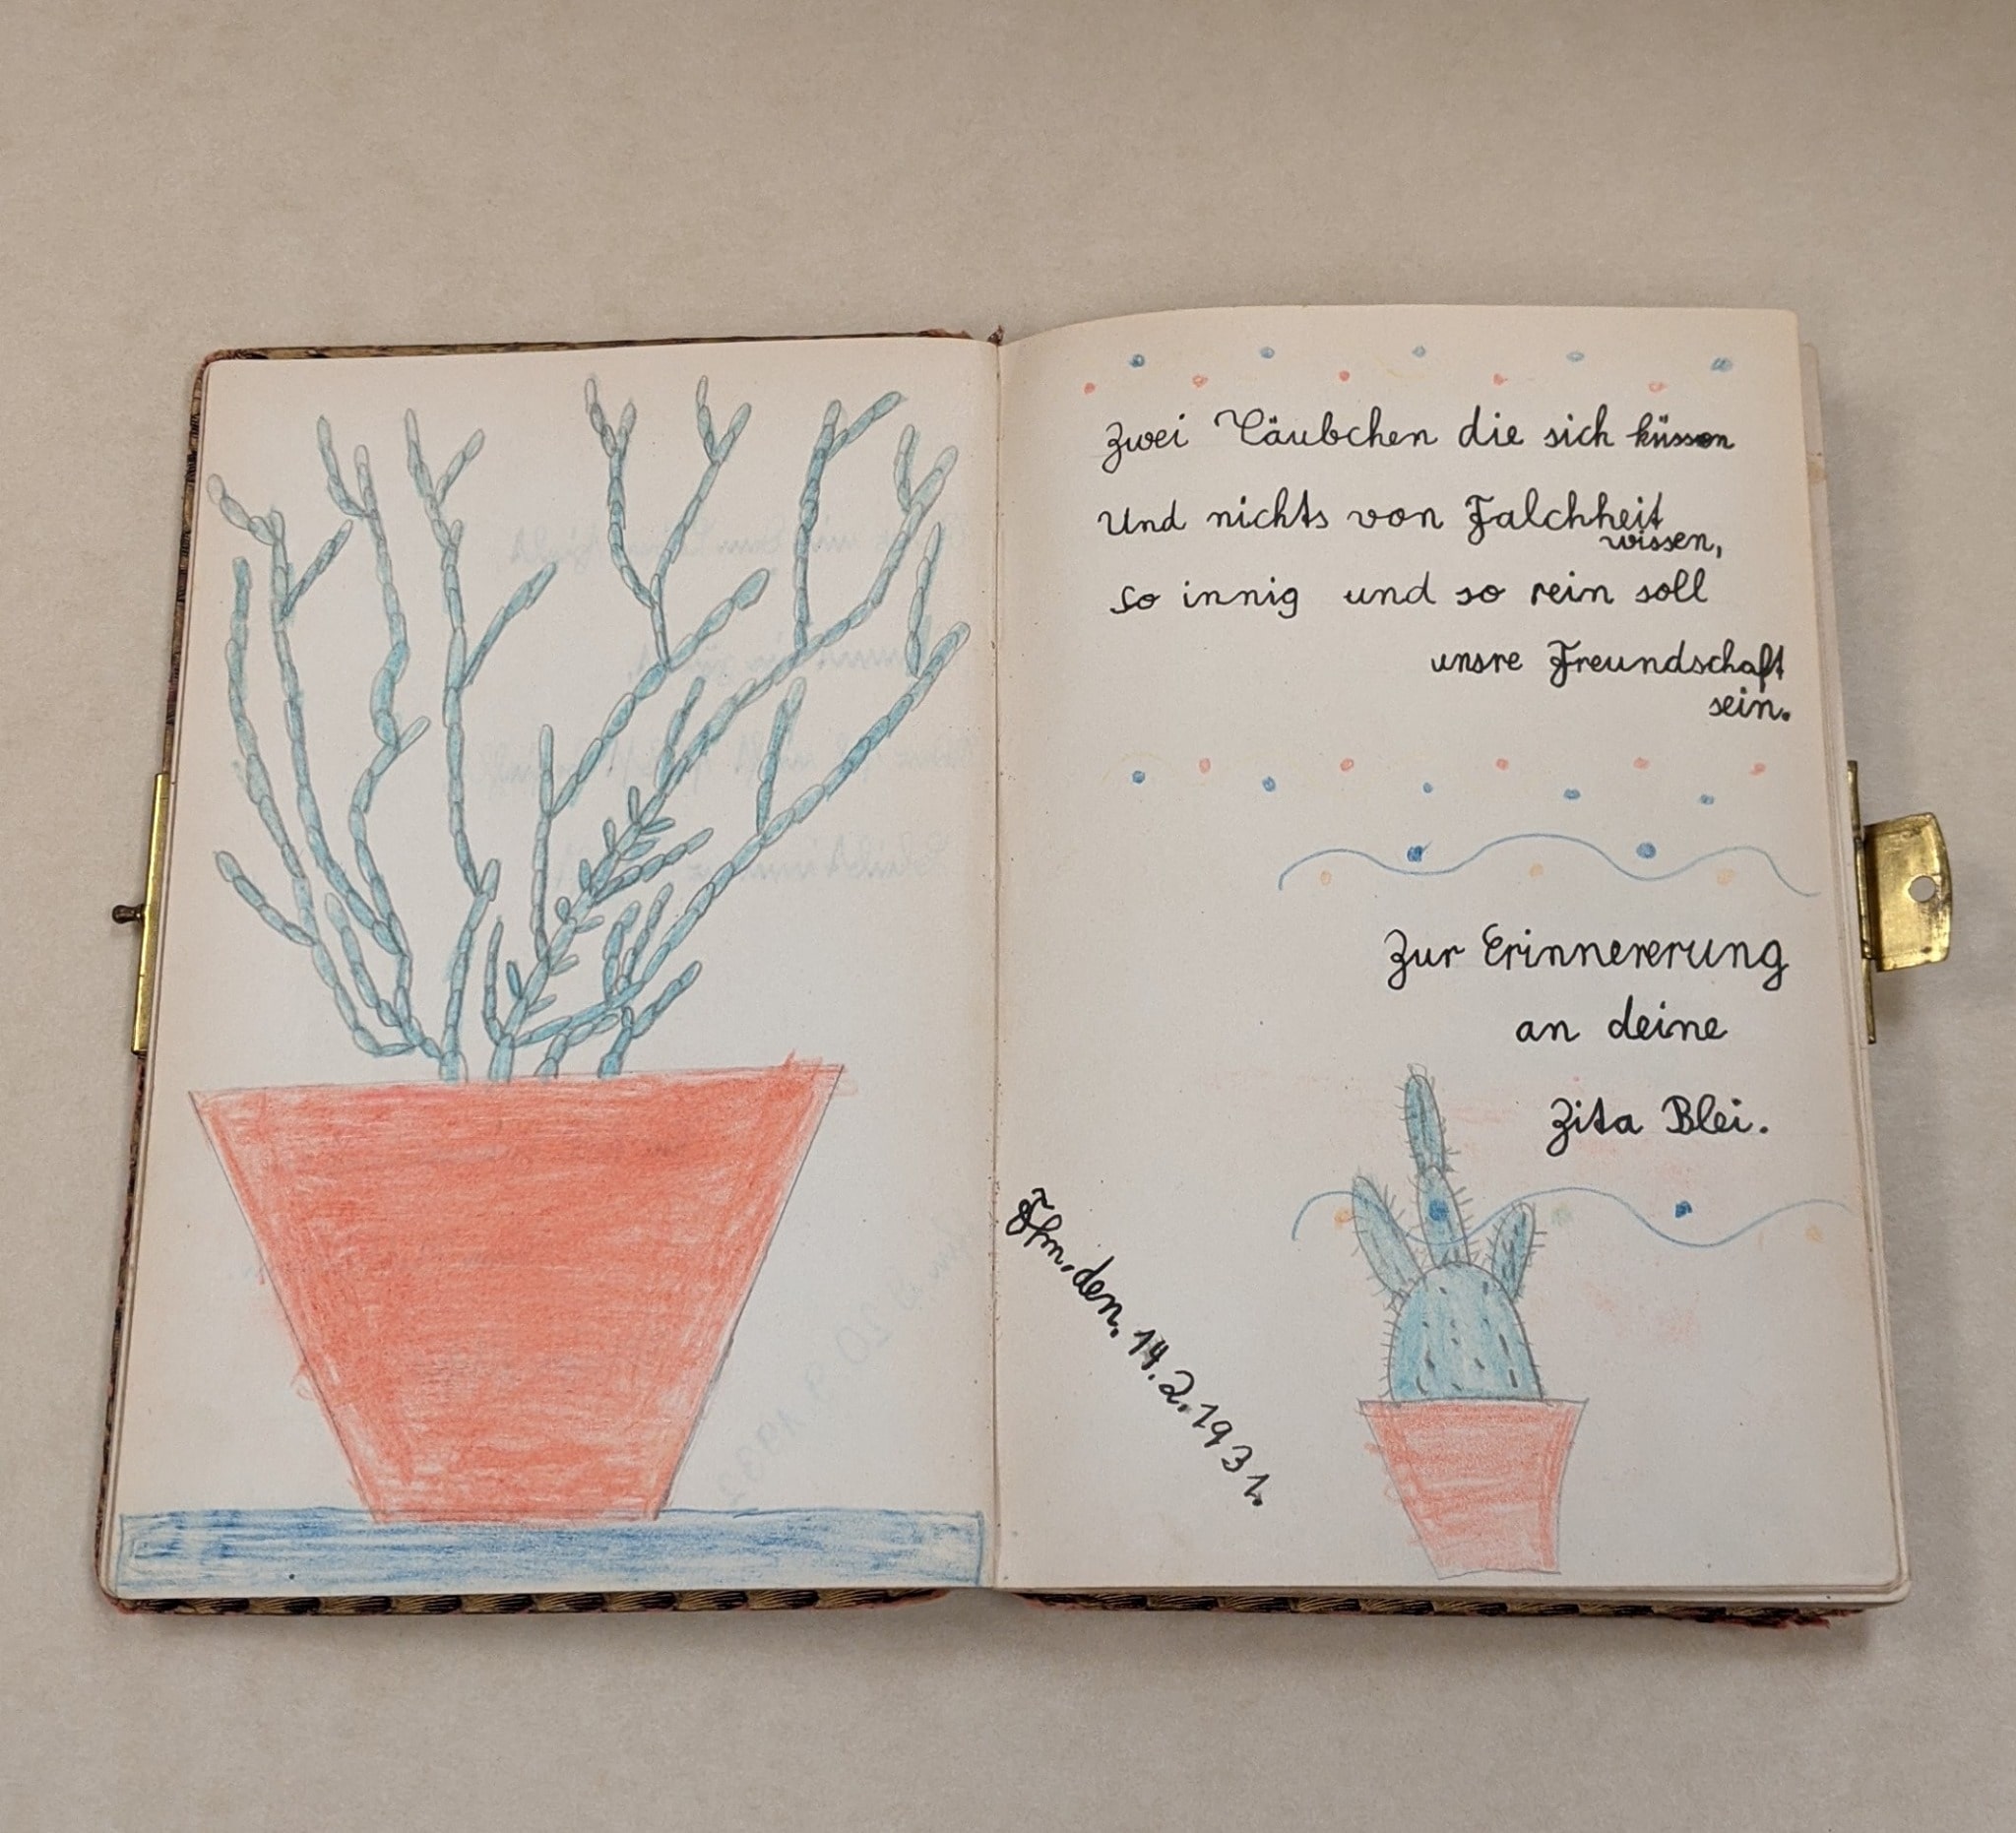 Zwei Täubchen die sich küssen
Und nichts von Falchheit
wissen,
so innig und so rein soll
unsre Freundschaft
sein.
Zur Erinnererung
an deine
Zita Blei.
Ffm. den. 14.2.1931.